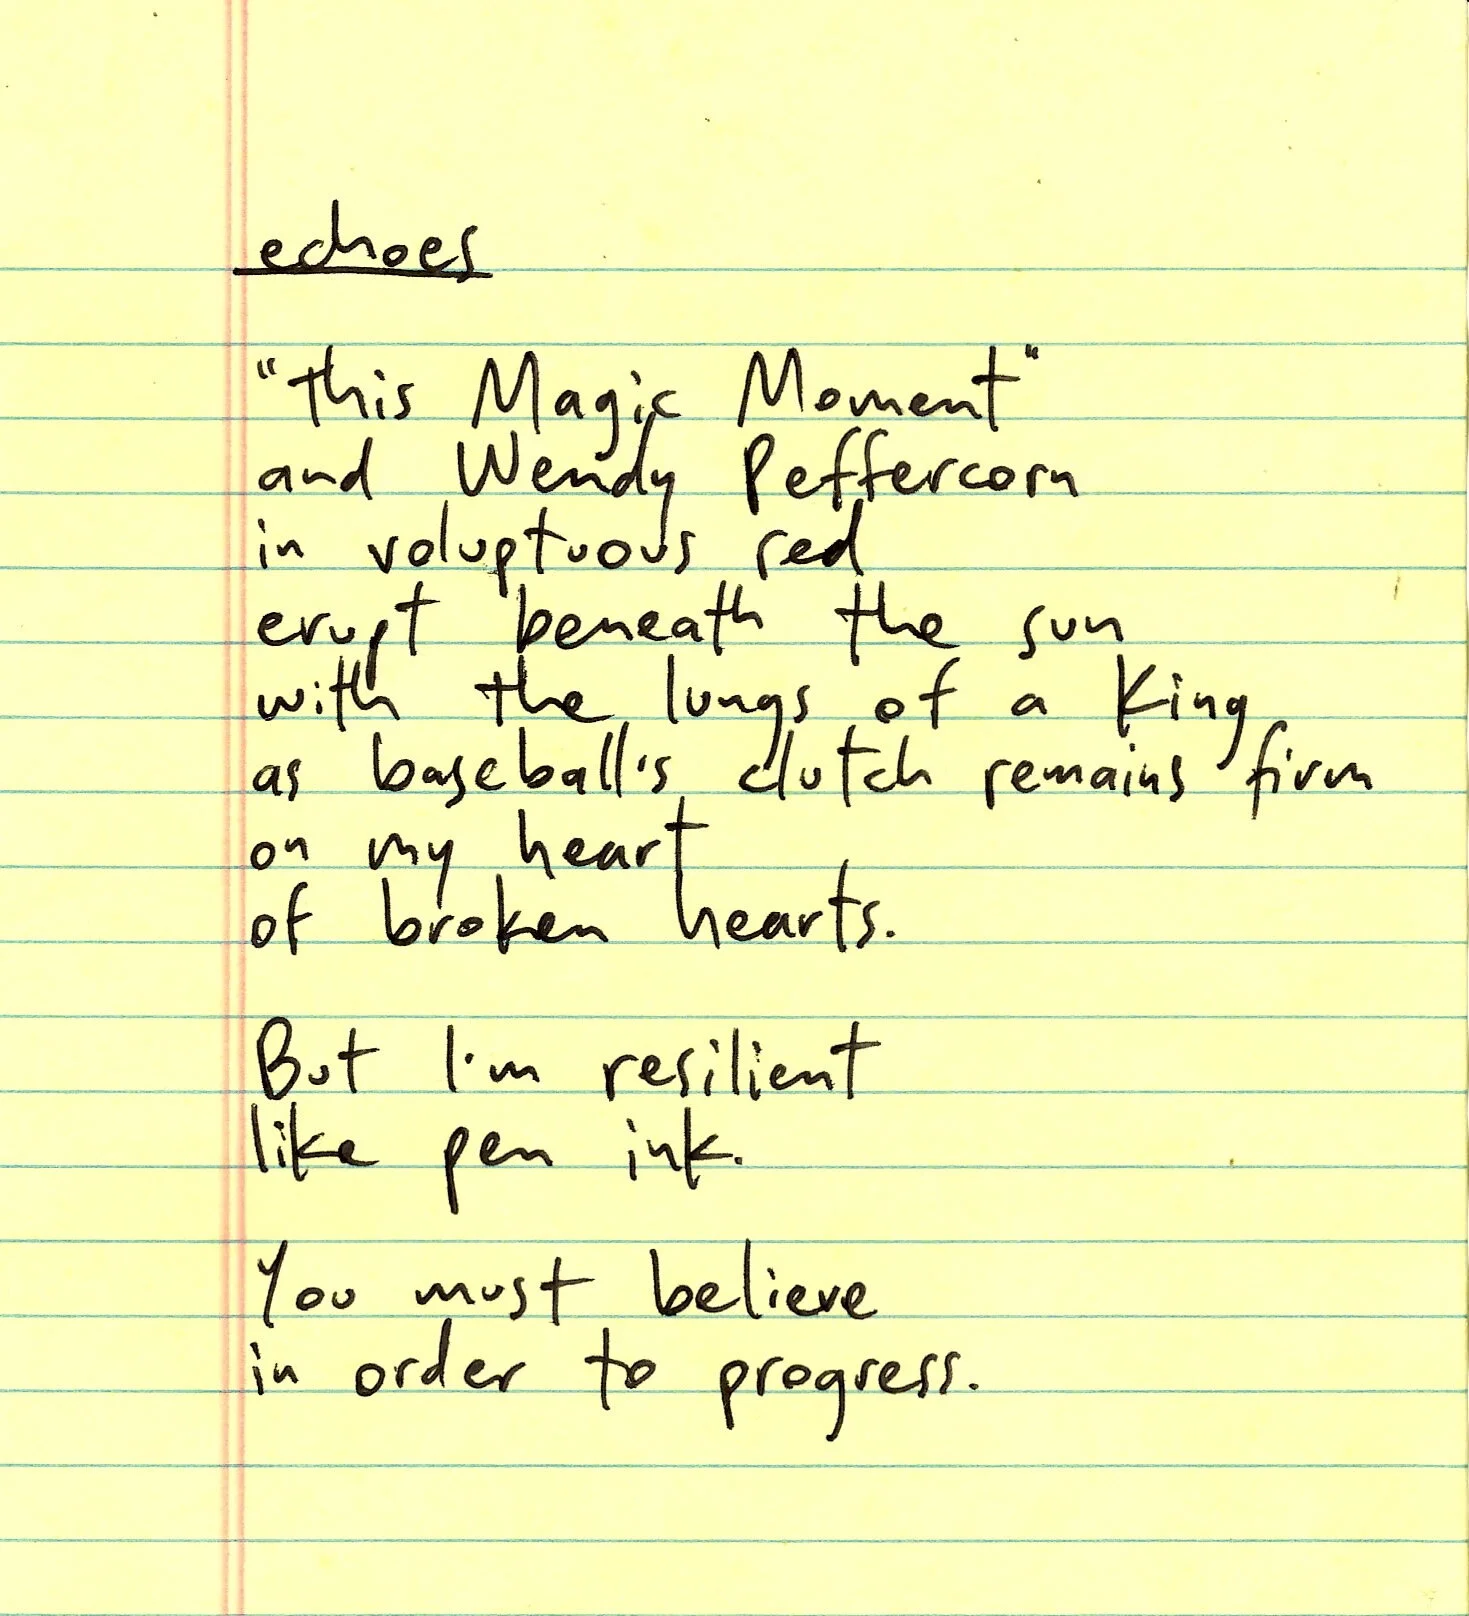 echoes
"this Magic Moment"
and Wendy Peffercorn
in voluptuous red
erupt beneath the sun
with the lungs of a King
as baseball's clutch remains firm
on my heart
of broken hearts.
But I'm resilient
like pen ink.
You must believe
in order to progress.